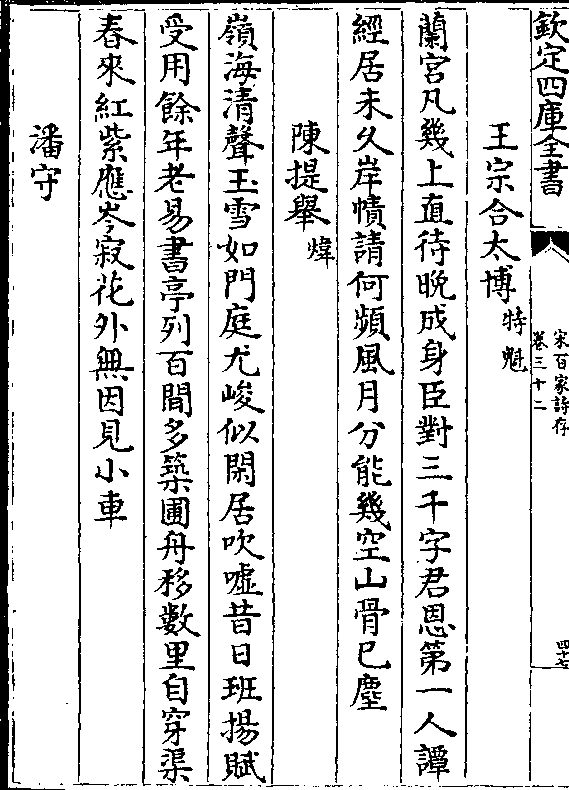 欽定四庫全書
宋百家詩存
卷三十二
四十七
王宗合太博特魁
蘭宮凡幾上直待晚成身臣對三千字君恩第一人譚
經居未久岸幘請何頻風月分能幾空山骨已塵
陳提舉煒
嶺海清聲玉雪如門庭尤峻似閑居吹噓昔日班揚賦
受用餘年老易書亭列百間多築圃舟移數里自穿渠
春來紅紫應岑寂花外無因見小車
潘守